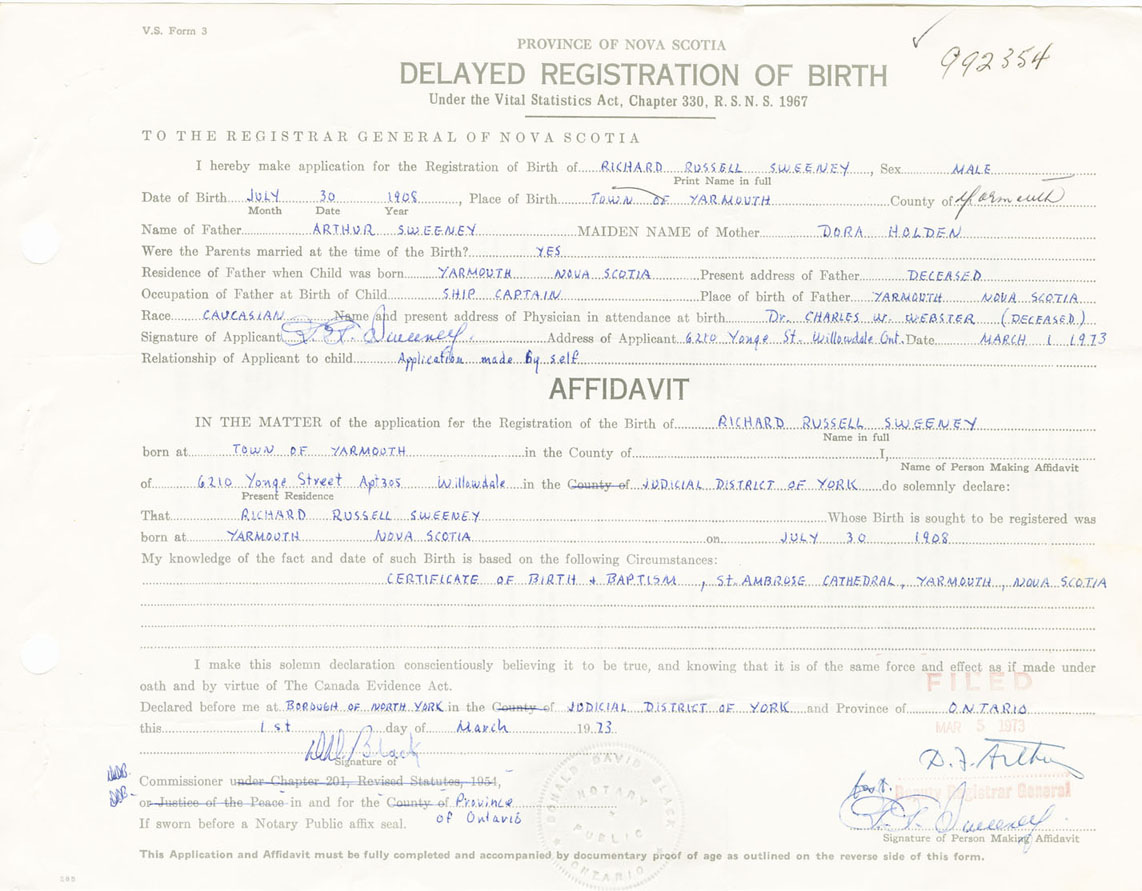 V.S. Form 3
992354
PROVINCE OF NOVA SCOTIA
DELAYED REGISTRATION OF BIRTH
Under the Vital Statistics Act, Chapter 330, R. S. N. S. 1967
TO THE REGISTRAR GENERAL OF NOVA SCOTIA
I hereby make application for the Registration of Birth of RICHARD RUSSELL SWEENEY, Sex MALE
Print Name in full
Date of Birth JULY 30 1908, Place of Birth TOWN OF YARMOUTH County of Yarmouth
Month Date Year
Name of Father ARTHUR SWEENEY MAIDEN NAME of Mother DORA HOLDEN
Were the Parents married at the time of the Birth? YES
Residence of Father when Child was born YARMOUTH NOVA SCOTIA Present address of Father DECEASED
Occupation of Father at Birth of Child SHIP CAPTAIN Place of birth of Father YARMOUTH NOVA SCOTIA
Race CAUCASIAN Name and present address of Physician in attendance at birth Dr. CHARLES W. WEBSTER (DECEASED)
Signature of Applicant Sweeney. Address of Applicant 6210 Yonge St. Willowdale Ont. Date MARCH 1 1973
Relationship of Applicant to child Application made by self
AFFIDAVIT
IN THE MATTER of the application for the Registration of the Birth of RICHARD RUSSELL SWEENEY
Name in full
born at TOWN OF YARMOUTH in the County of I,
Name of Person Making Affidavit
of 6210 Yonge Street Apt 305 Willowdale in the County of JUDICIAL DISTRICT OF YORK do solemnly declare:
Present Residence
That RICHARD RUSSELL SWEENEY Whose Birth is sought to be registered was
born at YARMOUTH NOVA SCOTIA on JULY 30 1908
My knowledge of the fact and date of such Birth is based on the following Circumstances:
CERTIFICATE OF BIRTH + BAPTISM, St. AMBROSE CATHEDRAL, YARMOUTH, NOVA SCOTIA
I make this solemn declaration conscientiously believing it to be true, and knowing that it is of the same force and effect as if made under
oath and by virtue of The Canada Evidence Act.
FILED
Declared before me at BOROUGH OF NORTH YORK in the County of JUDICIAL DISTRICT OF YORK and Province of ONTARIO
this 1st day of March 1973
MAR 5 1973
Black
Signature of
Commissioner under Chapter 201, Revised Statutes, 1954,
or Justice of the Peace in and for the County of Province
of Ontario
If sworn before a Notary Public affix seal.
DONALD DAVID BLACK
NOTARY
PUBLIC
ONTARIO
Deputy Registrar General
Sweeney.
Signature of Person Making Affidavit
This Application and Affidavit must be fully completed and accompanied by documentary proof of age as outlined on the reverse side of this form.